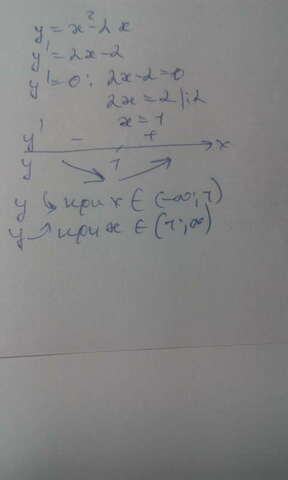 y = x² - 2x
y' = 2x - 2
y' = 0 : 2x - 2 = 0
2x = 2 |:2
x = 1
y' - + x
y ↘ 1 ↗
y ↘ при x ∈ (-∞; 1)
y ↗ при x ∈ (1; ∞)